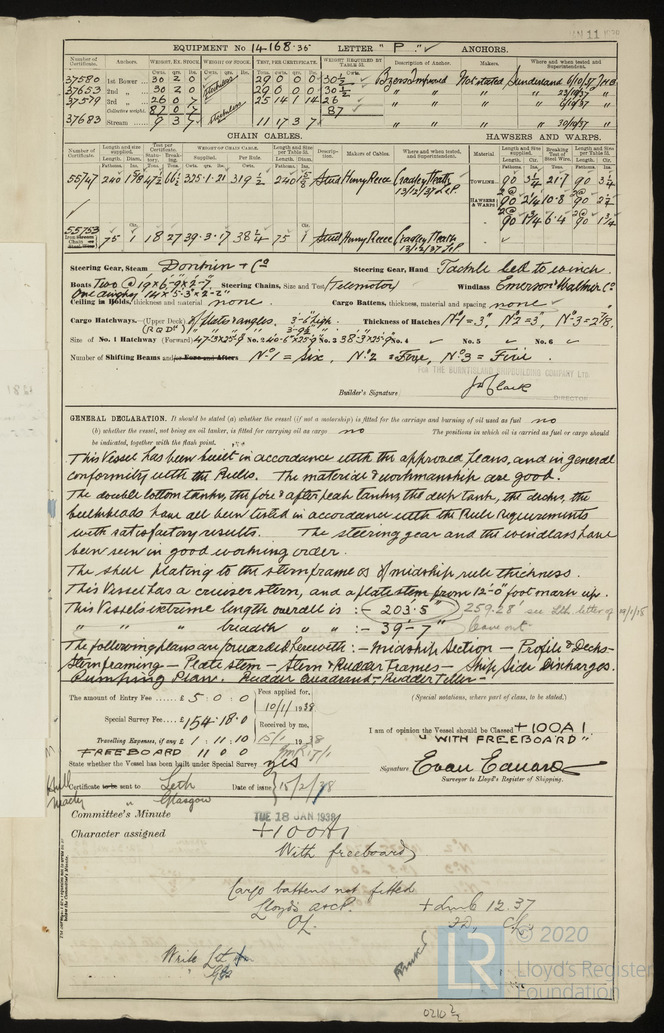 EQUIPMENT No 14168.36 LETTER "P" ANCHORS.
Number of Certificate. Anchors. WEIGHT, EX. STOCK. WEIGHT OF STOCK. TEST, PER CERTIFICATE. WEIGHT REQUIRED BY TABLE 31. Description of Anchor. Makers. Where and when tested and Superintendent.
37580 1st Bower 30 2 0 Stockless 29 0 0 0 30½ Byers Improved Not stated Sunderland 6/10/37
37653 2nd " 30 2 0 29 0 0 0 30½ " " " 23/10/37
37579 3rd " 26 0 7 Stockless 25 14 1 14 26 " " "
Collective weight 87 0 7 87
37683 Stream 9 3 7 11 17 3 7 " " " 30/10/37
CHAIN CABLES. HAWSERS AND WARPS.
Number of Certificate. Length and size supplied. Test per Certificate. WEIGHT OF CHAIN CABLE. Length and Size per Table 31. Description. Makers of Cables. Where and when tested, and Superintendent. Material Length and size supplied. Breaking Test of Steel Wire. Length and Size per Table 31.
55747 240 1⅝ 47½ 66½ 375.1.21 319½ 240 1⅝ Stud Henry Reece Cradley Heath 13/12/37 TOWLINE 90 3¼ 21.7 90 3¼
HAWSERS & WARPS 2@90 2¼ 10.8 2@90
2@90 1¾ 6.4 2@90 1¾
55753 75 1 18 27 39.3.17 38¼ 75 1 Stud Henry Reece Cradley Heath 13/12/37
Steering Gear, Steam Donkin & Co Steering Gear, Hand Tackle led to winch.
Boats Two @ 19'x6'-9"x2'-7" Steering Chains, Size and Test (Telemotor) Windlass Emerson Walker Co
One dinghy 14'x5'-3"x2'-2"
Ceiling in Holds, thickness and material none. Cargo Battens, thickness, material and spacing none
Cargo Hatchways. (Upper Deck) of plates & angles. 3'-6" high. Thickness of Hatches No1 = 3", No2 = 3", No3 = 2⅞.
(RQDK) 3'-9½"
Size of No. 1 Hatchway (Forward) 47'-3"x25'-9" No. 2 40'-6"x25'-9" No. 3 38'-3"x25'-9" No. 4 No. 5 No. 6
Number of Shifting Beams and/or Fore and Afters No1 = Six, No2 = Five, No3 = Five.
FOR THE BURNTISLAND SHIPBUILDING COMPANY LTD.
Builder's Signature
DIRECTOR
GENERAL DECLARATION. It should be stated (a) whether the vessel (if not a motorship) is fitted for the carriage and burning of oil used as fuel no
(b) whether the vessel, not being an oil tanker, is fitted for carrying oil as cargo no The positions in which oil is carried as fuel or cargo should
be indicated, together with the flash point.
This Vessel has been built in accordance with the approved plans, and in general
conformity with the Rules. The material & workmanship are good.
The double bottom tanks, the fore & after peak tanks, the deep tank, the decks, the
bulkheads have all been tested in accordance with the Rule Requirements
with satisfactory results. The steering gear and the windlass have
been seen in good working order.
The shell plating to the sternframe is of midship rule thickness.
This Vessel has a cruiser stern, and a plate stem from 12'-0" foot mark up.
This Vessel's extreme length overall is :- 203.5" 259.28' see Lth. letter of
" " " breadth " " :- 39'-7" leave out
The following plans are forwarded herewith :- Midship Section - Profile & Decks-
Sternframing - Plate stem - Stern & Rudder Frames - Ship Side Discharges.
Pumping Plan. Rudder Quadrant - Rudder Tiller -
The amount of Entry Fee £ 5 : 0 : 0 Fees applied for, (Special notations, where part of class, to be stated.)
Special Survey Fee £ 154 : 18 : 0 10/1/1938
Received by me,
Travelling Expenses, if any £ 1 : 11 : 10 15/1 1938
FREEBOARD 11 0 0
I am of opinion the Vessel should be Classed +100A1
"WITH FREEBOARD"
State whether the Vessel has been built under Special Survey yes
Signature Evan Edwards
Surveyor to Lloyd's Register of Shipping.
Hull Certificate to be sent to Leith Date of issue 15/2/38
Machy " Glasgow
Committee's Minute TUE 18 JAN 1938
Character assigned +100A1
With freeboard
Cargo battens not fitted
Lloyd's A&CP. +LMC 12.37
OL. FD, CL
Write Lth
LR © 2020
Lloyd's Register
Foundation
0210 2/2